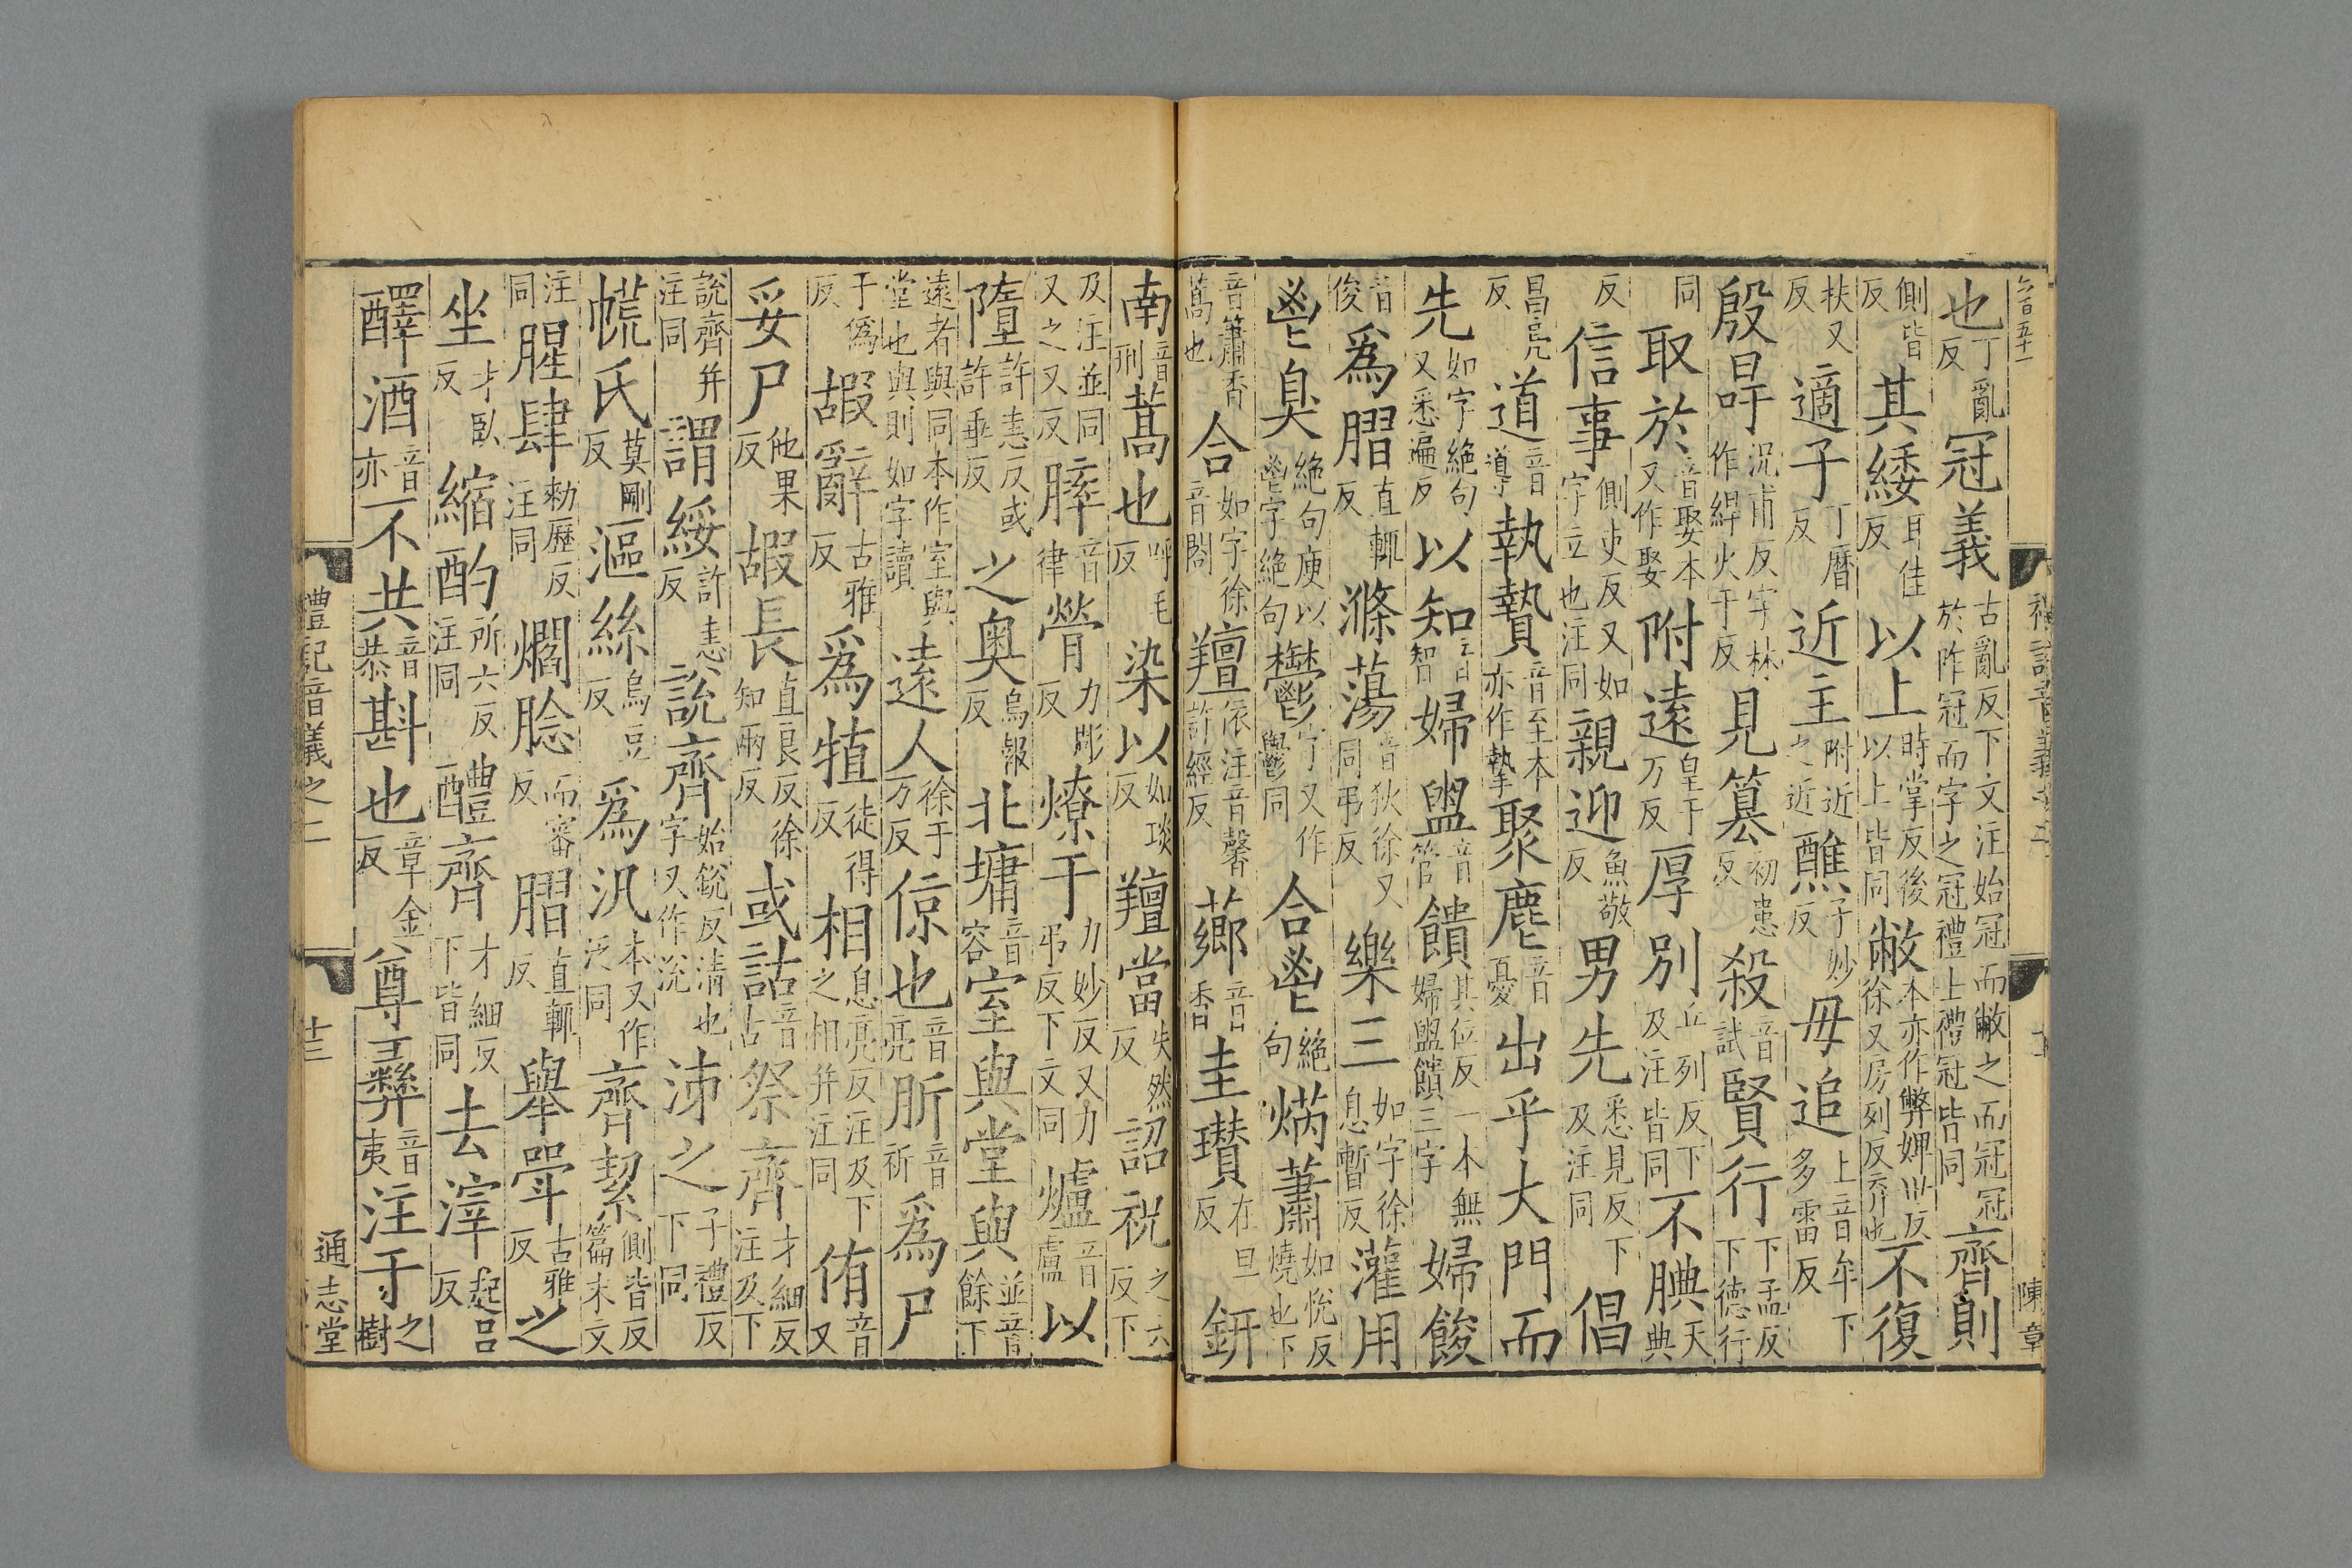 六百五十一
禮記音義之二
陳章
也丁亂反冠義古亂反下文注始冠而敝之而冠冠於阼冠而字之冠禮上禮冠皆同齊則
側皆反其緌耳佳反以上時掌反後以上皆同敝本亦作弊婢世反徐又房列反弃也不復
扶又反適子丁曆反近主附近之近醮子妙反毋追上音牟下多雷反
殷冔況甫反字林作綍火于反見篡初患反殺音試賢行下孟反下德行
同取於音娶本又作娶附遠皇于万反厚別丘列反下及注皆同不腆天典
反信事側吏反又如字立也注同親迎魚敬反男先悉見反下及注同倡
昌亮反道音導執贄音至本亦作摯聚麀音憂出乎大門而
先如字絶句又悉遍反以知音智婦盥音管饋其位反一本無婦盥饋三字婦餕
音俊爲䐑直輒反滌蕩音狄徐又同弔反樂三如字徐息暫反灌用
鬯臭絶句庾以鬯字絶句鬱字又作欝同合鬯絶句焫蕭如悅反燒也下
音簫香蒿也合如字徐音閤羶依注音馨許經反薌音香圭瓚在旦反鈃
南音刑蒿也呼毛反染以如琰反羶當失然反詔祝之六反下
及注並同又之又反膟音律膋力彫反燎于力妙反又力弔反下文同爐音盧以
隋許恚反或許垂反之奥烏報反北墉音容室與堂與並音餘下
遠者與同本作室與堂也與則如字讀遠人徐于万反倞也音亮肵音祈爲尸
于僞反嘏辭古雅反爲犆徒得反相息亮反注及下之相并注同侑音又
妥尸他果反嘏長直良反徐知兩反或詁音古祭齊才細反注及下
說齊并注同謂綏許恚反說齊始銳反清也字又作涗泲之子禮反下同
㡆氏莫剛反漚絲烏豆反爲汎本又作泛同齊絜側皆反篇末文
注同腥肆勑歷反注同爓腍而審反䐑直輒反舉斝古雅反之
坐才臥反縮酌所六反注同醴齊才細反下皆同去滓起呂反
醳酒音亦不共音恭斟也章金反尊彝音夷注于之樹
禮記音義之二
十三
通志堂